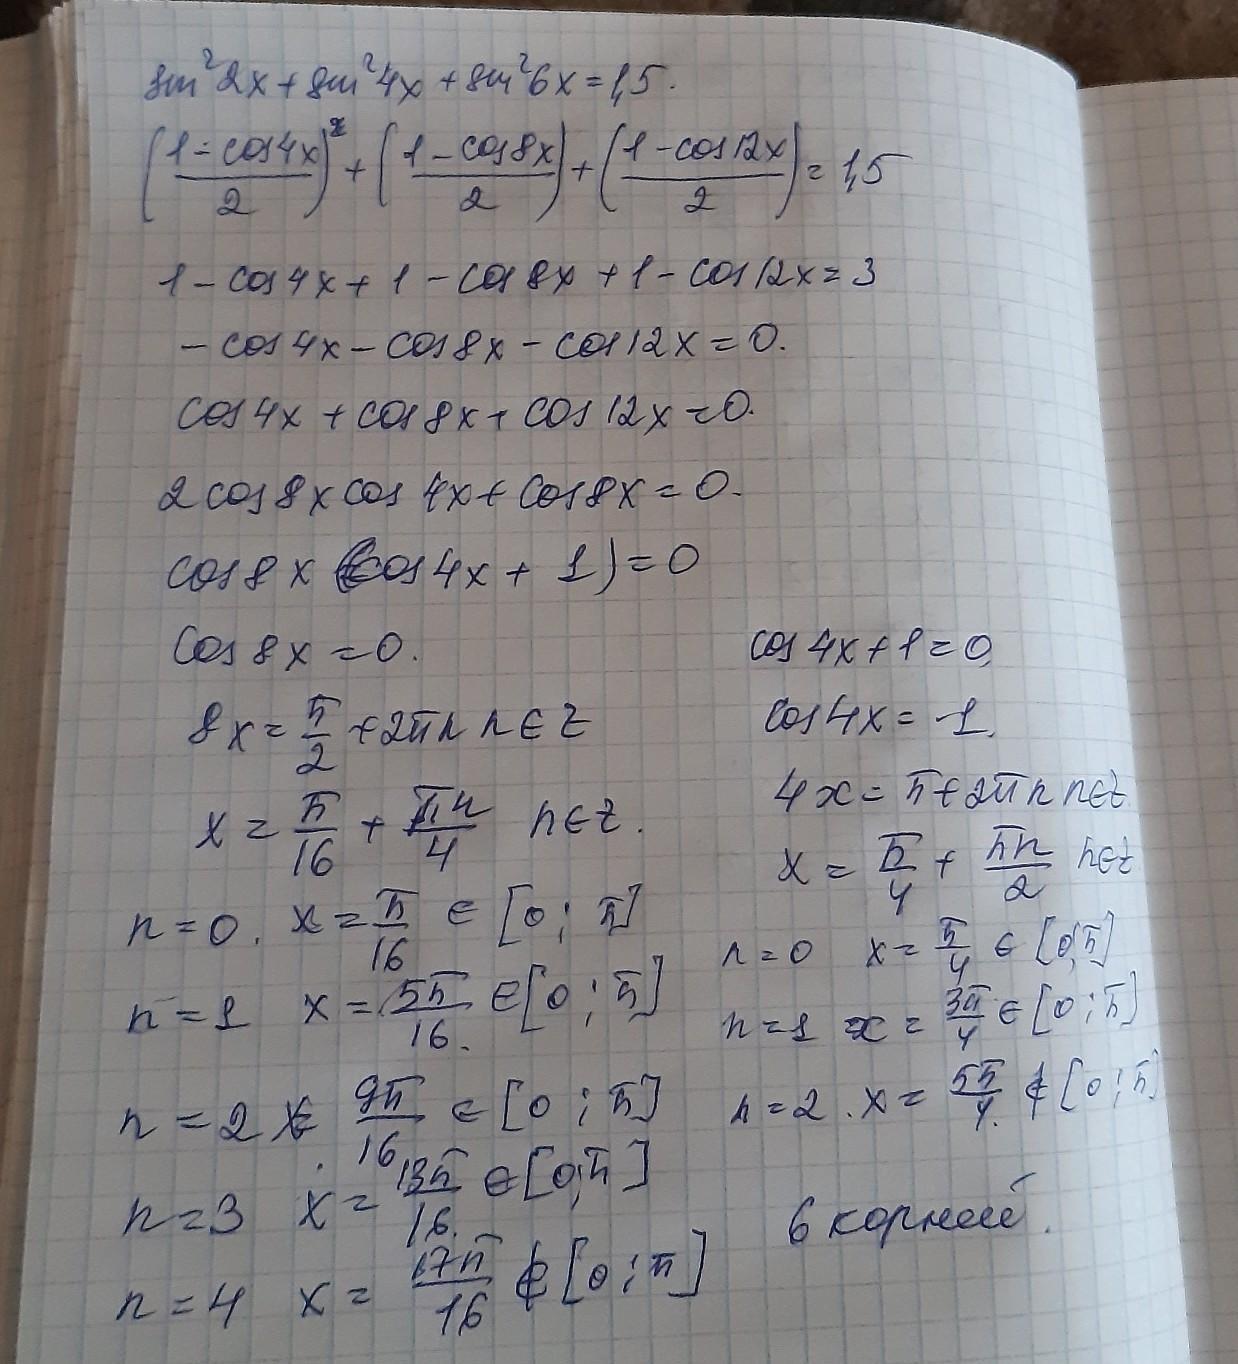 sin²2x + sin²4x + sin²6x = 1,5.
((1 - cos4x)/2) + ((1 - cos8x)/2) + ((1 - cos12x)/2) = 1,5
1 - cos4x + 1 - cos8x + 1 - cos12x = 3
- cos4x - cos8x - cos12x = 0.
cos4x + cos8x + cos12x = 0.
2cos8x cos4x + cos8x = 0.
cos8x (cos4x + 1) = 0
cos8x = 0.
8x = π/2 + 2πn n∈Z
x = π/16 + πn/4 n∈Z.
n = 0. x = π/16 ∈ [0; π]
n = 1 x = 5π/16. ∈ [0; π]
n = 2 x = 9π/16 ∈ [0; π]
n = 3 x = 13π/16. ∈ [0; π]
n = 4 x = 17π/16 ∉ [0; π]
cos4x + 1 = 0,
cos4x = -1.
4x = π + 2πn n∈Z.
x = π/4 + πn/2 n∈Z
n = 0 x = π/4 ∈ [0; π]
n = 1 x = 3π/4 ∈ [0; π]
n = 2. x = 5π/4. ∉ [0; π]
6 корней.